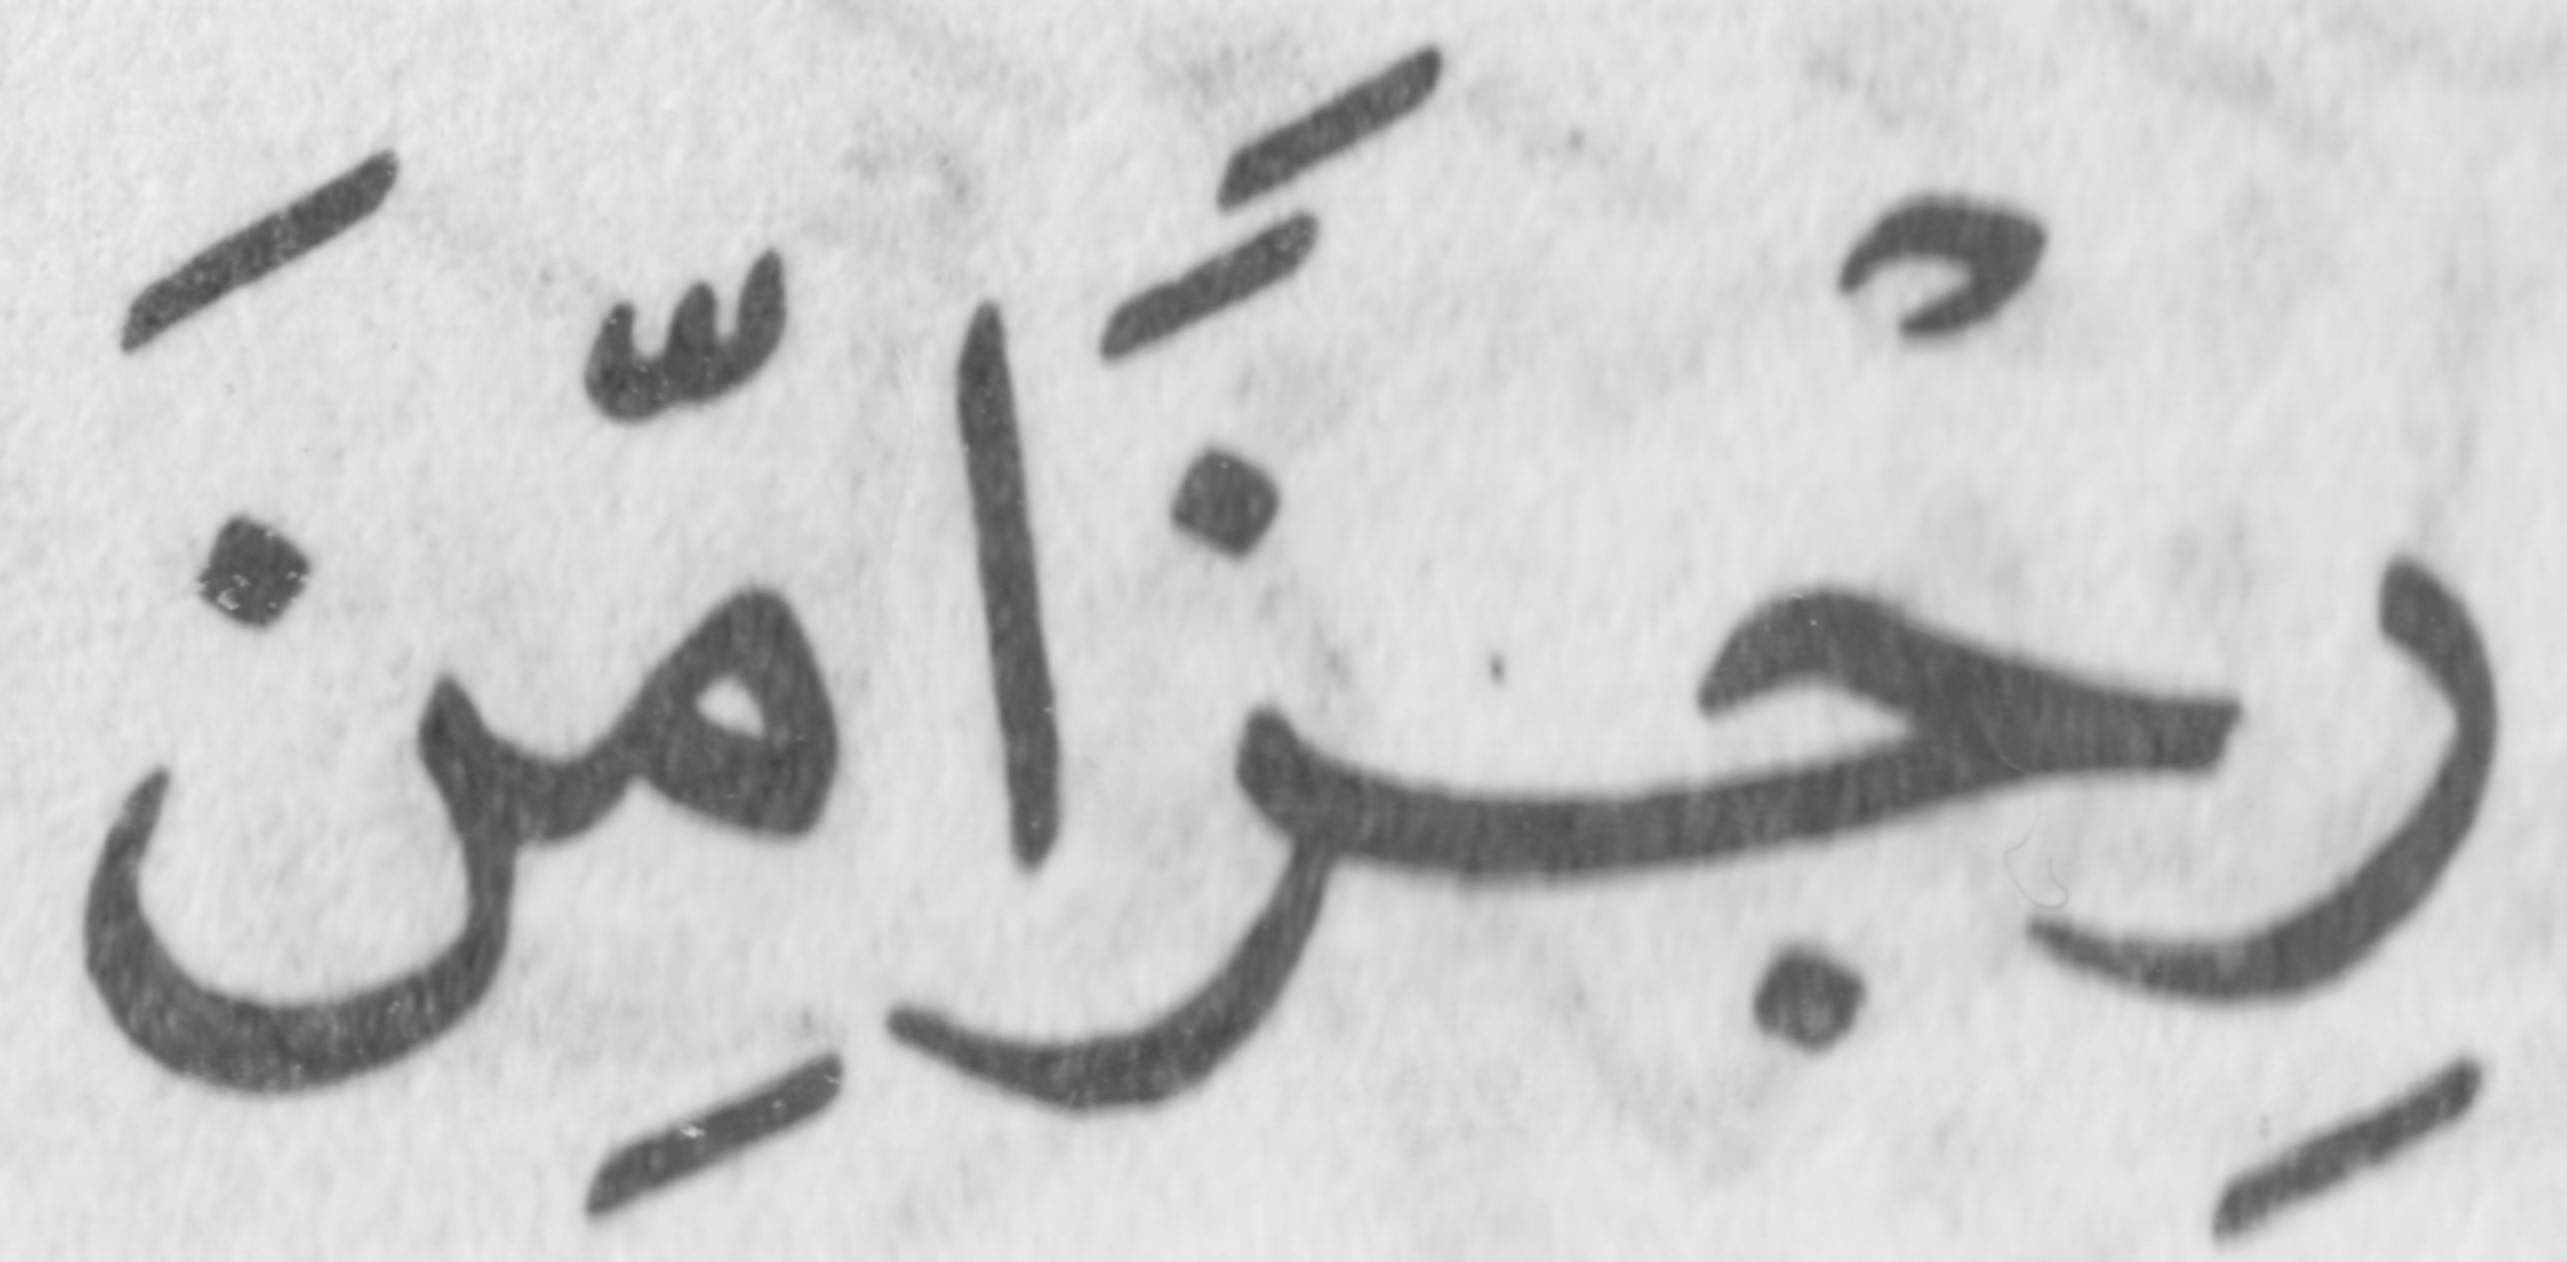 رِجْزًا مِّنَ